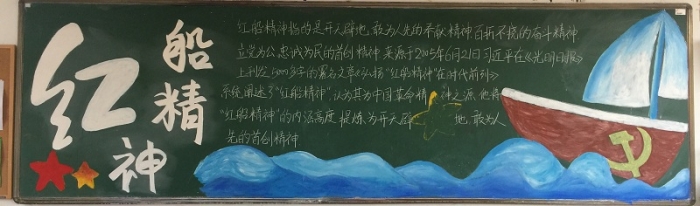 红船精神
红船精神指的是开天辟地、敢为人先的首创精神百折不挠的奋斗精神
立党为公忠诚为民的首创精神来源于2005年6月21日习近平在《光明日报》
上刊发5000多字的署名文章《弘扬"红船精神"走在时代前列》
系统阐述了"红船精神",认为其为中国革命精神之源,他将
"红船精神"的内涵高度提炼为开天辟地、敢为人
先的首创精神